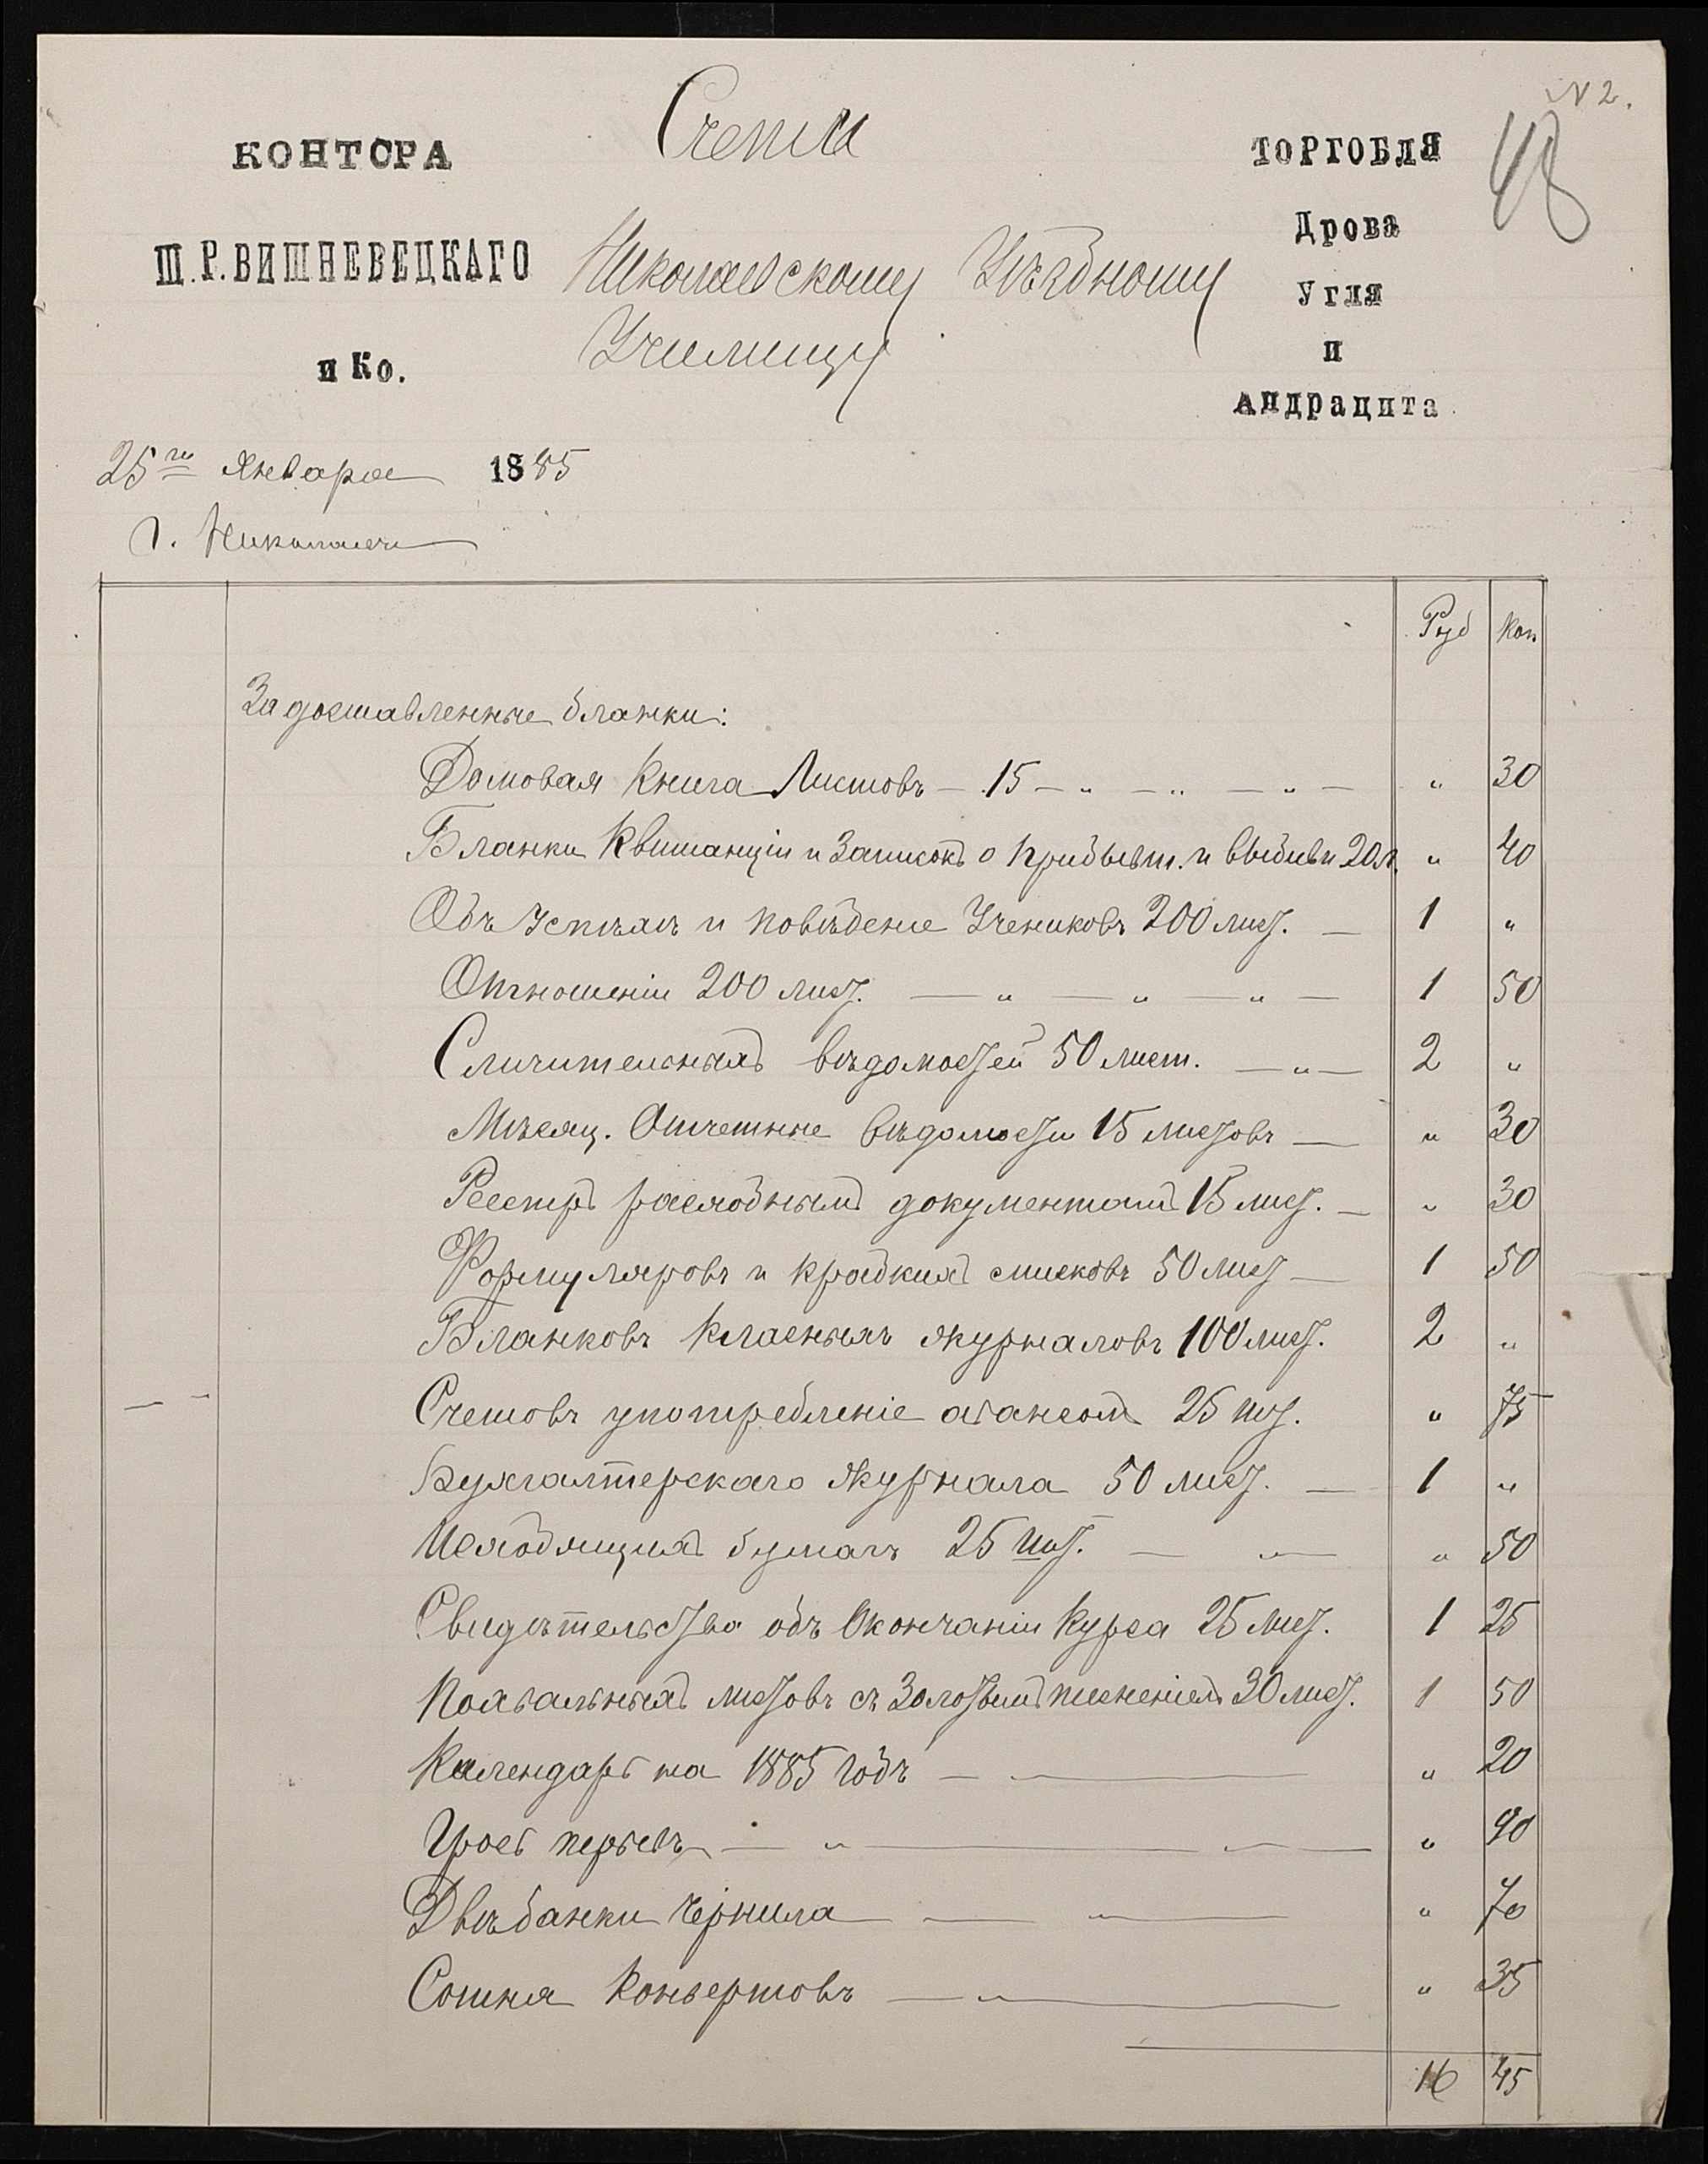 N 2.
48
Счетъ
КОНТОРА
Ш.Р.ВИШНЕВЕЦКАГО
и Ко.
ТОРГОВЛЯ
Дрова
Угля
и
Андрацита
Николаевскому Уѣздному
Училищу
25го Января 1885
г. Николаевъ
Руб Коп
За доставленные бланки:
Домовая Книга Листовъ — 15 — „ — „ — „ — „ 30
Бланки Квитанціи и Записокъ о прибывт. и выбывш 20 л. „ 40
Объ Успѣхахъ и поведеніе Учениковъ 200 лист. — 1 „
Отношеніи 200 лист. — „ — „ — „ — 1 50
Сличительныхъ вѣдомостей 50 лист. — „ — 2 „
Мѣсяц. Отчетные вѣдомости 15 листовъ — „ 30
Реестръ расходнымъ документамъ 15 лист. — „ 30
Формуляровъ и краткихъ списковъ 50 лист — 1 50
Бланковъ класныхъ журналовъ 100 лист. 2 „
Счетовъ употребленіе авансомъ 25 лис. „ 75
Бухгалтерскаго журнала 50 лист. — 1 „
Исходящихъ бумагъ 25 лис. — „ — „ 50
Свидѣтельства объ Окончаніи Курса 25 лист. 1 25
Похвальныхъ листовъ съ Золотымъ тисненіемъ 30 лист. 1 50
Календарь на 1885 годъ — „ 20
Гросъ перьевъ — „ — „ — „ 90
Двѣ банки чернила — „ — „ 70
Сотня Конвертовъ — „ — „ 35
16 45